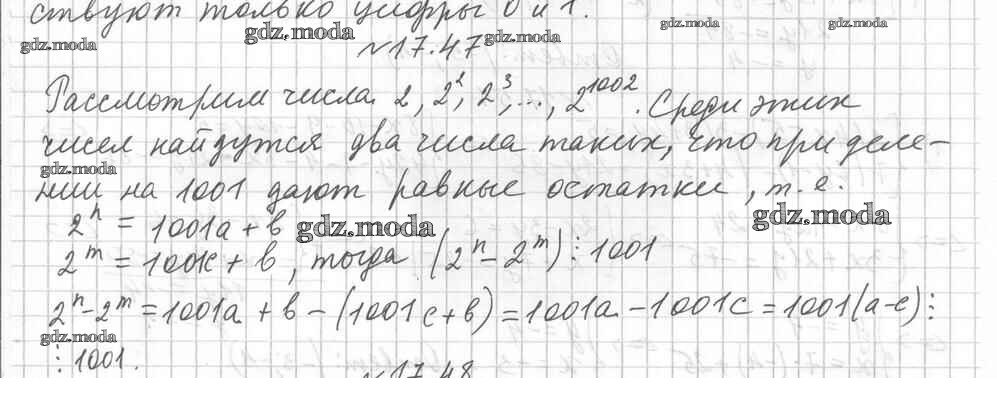 ствуют только цифры 0 и 1.
gdz.moda gdz.moda gdz.moda gdz.moda gdz.moda
N17.47
Рассмотрим числа 2, 2², 2³, ..., 2¹⁰⁰². Среди этих
чисел найдутся два числа таких, что при деле-
gdz.moda
нии на 1001 дают равные остатки, т. е.
2ⁿ = 1001a + в gdz.moda gdz.moda
2ᵐ = 1001c + в, тогда (2ⁿ - 2ᵐ) ⋮ 1001
2ⁿ - 2ᵐ = 1001a + в - (1001c + в) = 1001a - 1001c = 1001(a-c) ⋮
gdz.moda
⋮ 1001.
N17.48